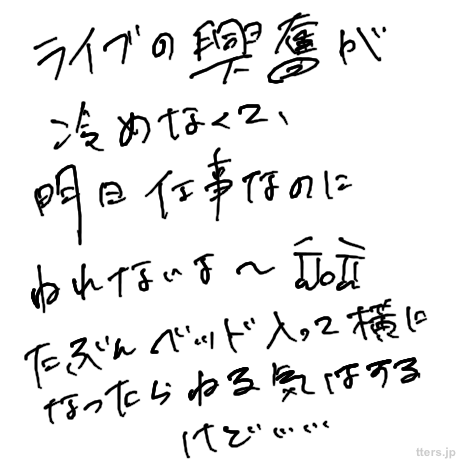 ライブの興奮が
冷めなくて、
明日仕事なのに
ねれないな〜
たぶんベッド入って横に
なったらねる気はする
けど……
tters.jp